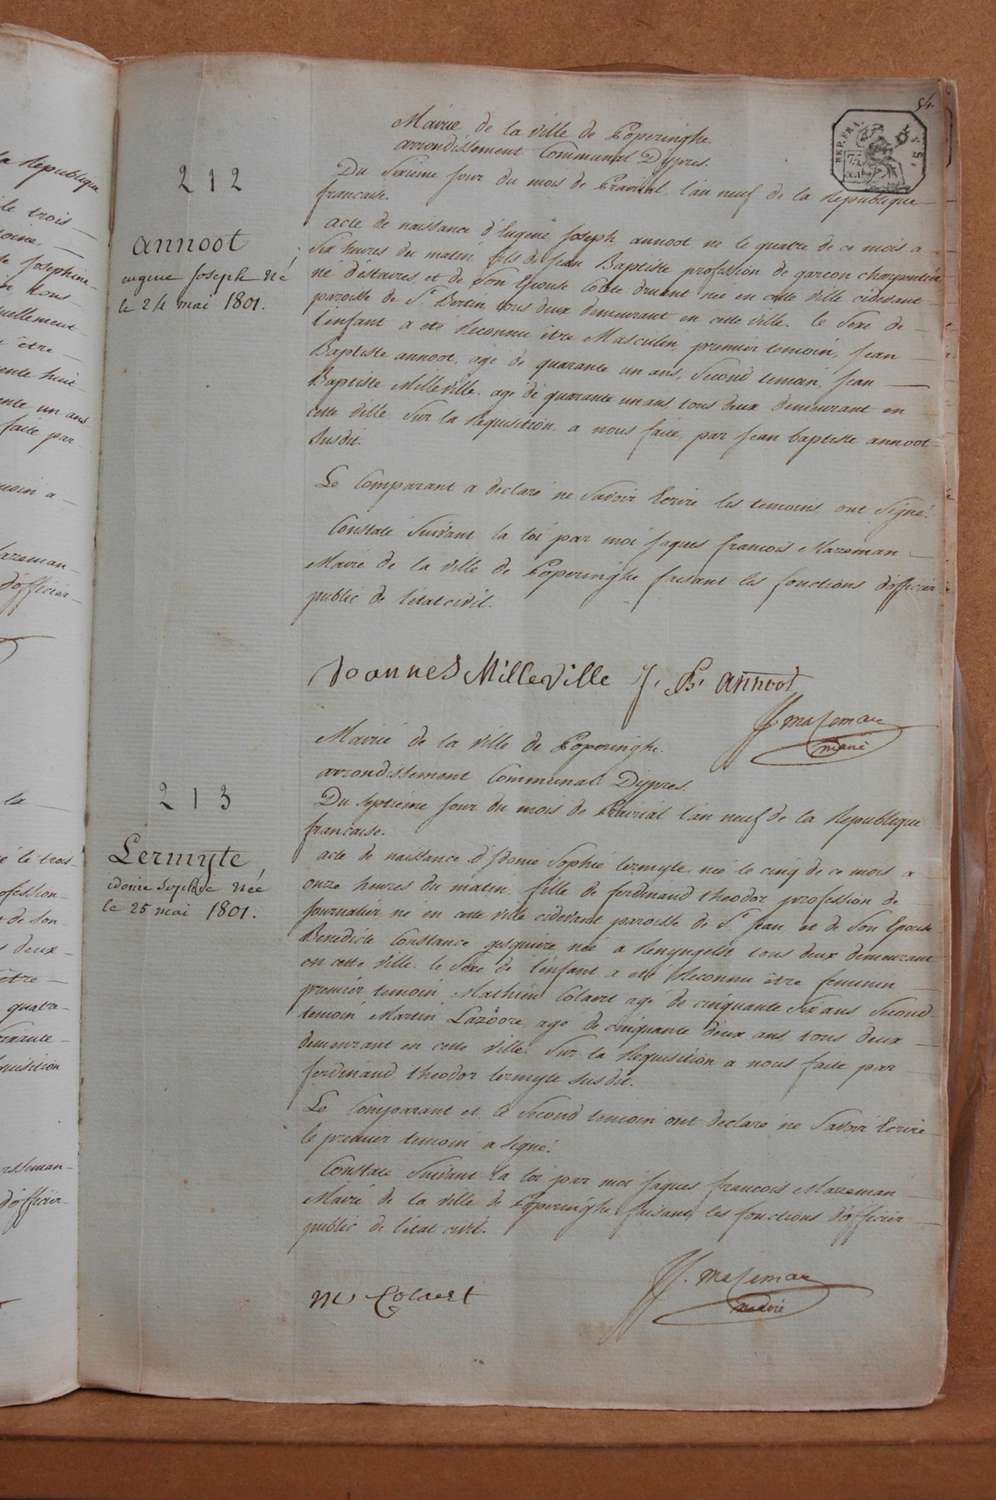 54.
REP. FRA.
75
212
annoot
eugene Joseph Né
le 24 mai 1801.
Mairie de la ville de Poperinghe
arrondissement Communal D'ypres.
Du Sixieme Jour du mois de Prairial l'an neuf de la Republique
francaise.
acte de naissance d'Eugene Joseph annoot ne le quatre de ce mois a
Six heures du matin, fils de Jean Baptiste profession de garcon charpentier
né d'Estaires, et de Son Epouse druant née en cette ville cidevant
paroisse de St. Bertin tous deux demeurant en cette ville. le Sexe de
l'enfant a été Reconnu être Masculin premier temoin, Jean
Baptiste annoot, age de quarante un ans, Second temoin, Jean
Baptiste Milleville, age de quarante un ans, tous deux demeurant en
cette ville Sur la Requisition a nous faite, par Jean baptiste annoot
Susdit.
Le Comparant a declaré ne Savoir Ecrire les temoins ont Signé.
Constaté Suivant la loi par moi Jaques francois Mazeman
Maire de la ville de Poperinghe faisant les fonctions d'officier
public de l'etat civil.
Joannes Milleville J. B. annoot
J. f. mazeman
maire
213
Lermyte
idonie Sophie Née
le 25 mai 1801.
Mairie de la ville de Poperinghe.
arrondissement Communal D'ypres.
Du Septieme Jour du mois de Prairial l'an neuf de la Republique
francaise.
acte de naissance d'Idonie Sophie lermyte née le cinq de ce mois a
onze heures du matin, fille de ferdinand theodor profession de
Journalier né en cette ville cidevant paroisse de St. Jean et de Son Epouse
Benedicte Constance gesquire née a Renynghelst tous deux demeurant
en cette ville. le Sexe de l'enfant a été Reconnu être feminin
premier temoin Mathieu Colaert age de cinquante Six ans Second
temoin Martin age de cinquante deux ans tous deux
demeurant en cette ville. Sur la Requisition a nous faite par
ferdinand theodor lermyte Susdit.
Le Comparant et le Second temoin ont declaré ne Savoir Ecrire
le premier temoin a Signé.
Constaté Suivant la loi par moi Jaques francois Mazeman
Maire de la ville de Poperinghe faisant les fonctions d'officier
public de l'etat civil.
M Colaert
J. f. mazeman
maire